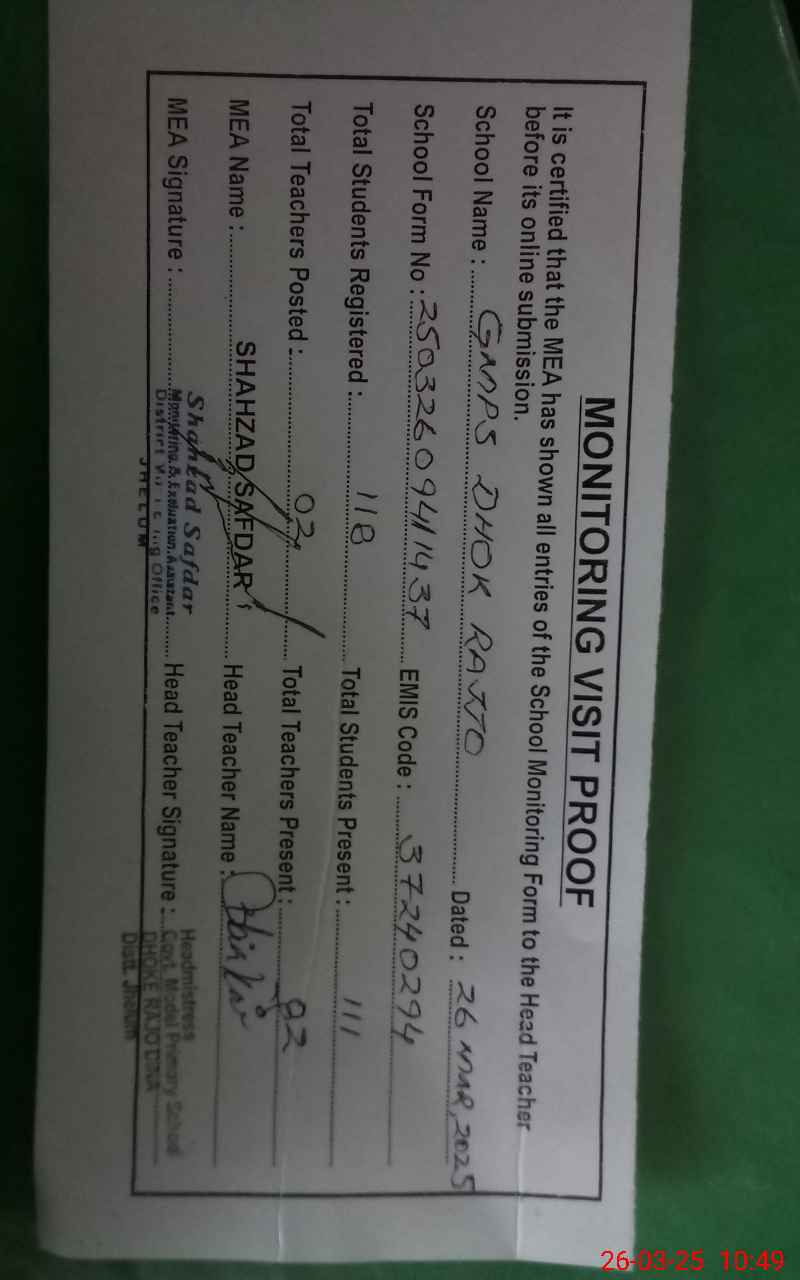 MONITORING VISIT PROOF
It is certified that the MEA has shown all entries of the School Monitoring Form to the Head Teacher
before its online submission.
School Name : GMPS DHOK RAJJO Dated : 26 MAR, 2025
School Form No : 25032609411437 EMIS Code : 37240294
Total Students Registered : 118 Total Students Present : 111
Total Teachers Posted : 02 Total Teachers Present : 02
MEA Name : SHAHZAD SAFDAR Head Teacher Name :
MEA Signature : Head Teacher Signature :
Shahzad Safdar
Monitoring & Evaluation Assistant
District Monitoring Office
JHELUM
Headmistress
Govt. Model Primary School
DHOKE RAJO DINA
Distt. Jhelum
26-03-25 10:49